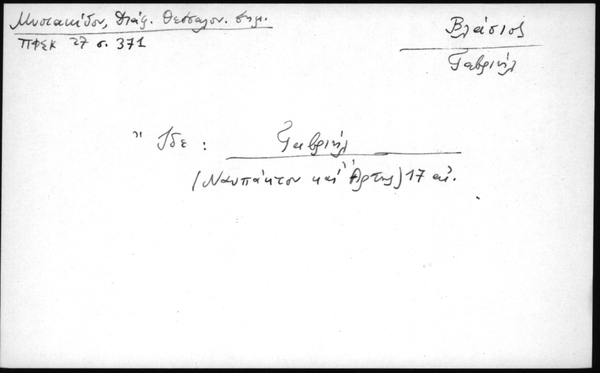 Μυστακίδου, Διάφ. Θεσσαλον. σημ.
ΠΦΣΚ 27 σ. 371
Βλάσιος
Γαβριήλ
Ἴδε : Γαβριήλ
(Ναυπάκτου καὶ Ἄρτης) 17 αἰ.